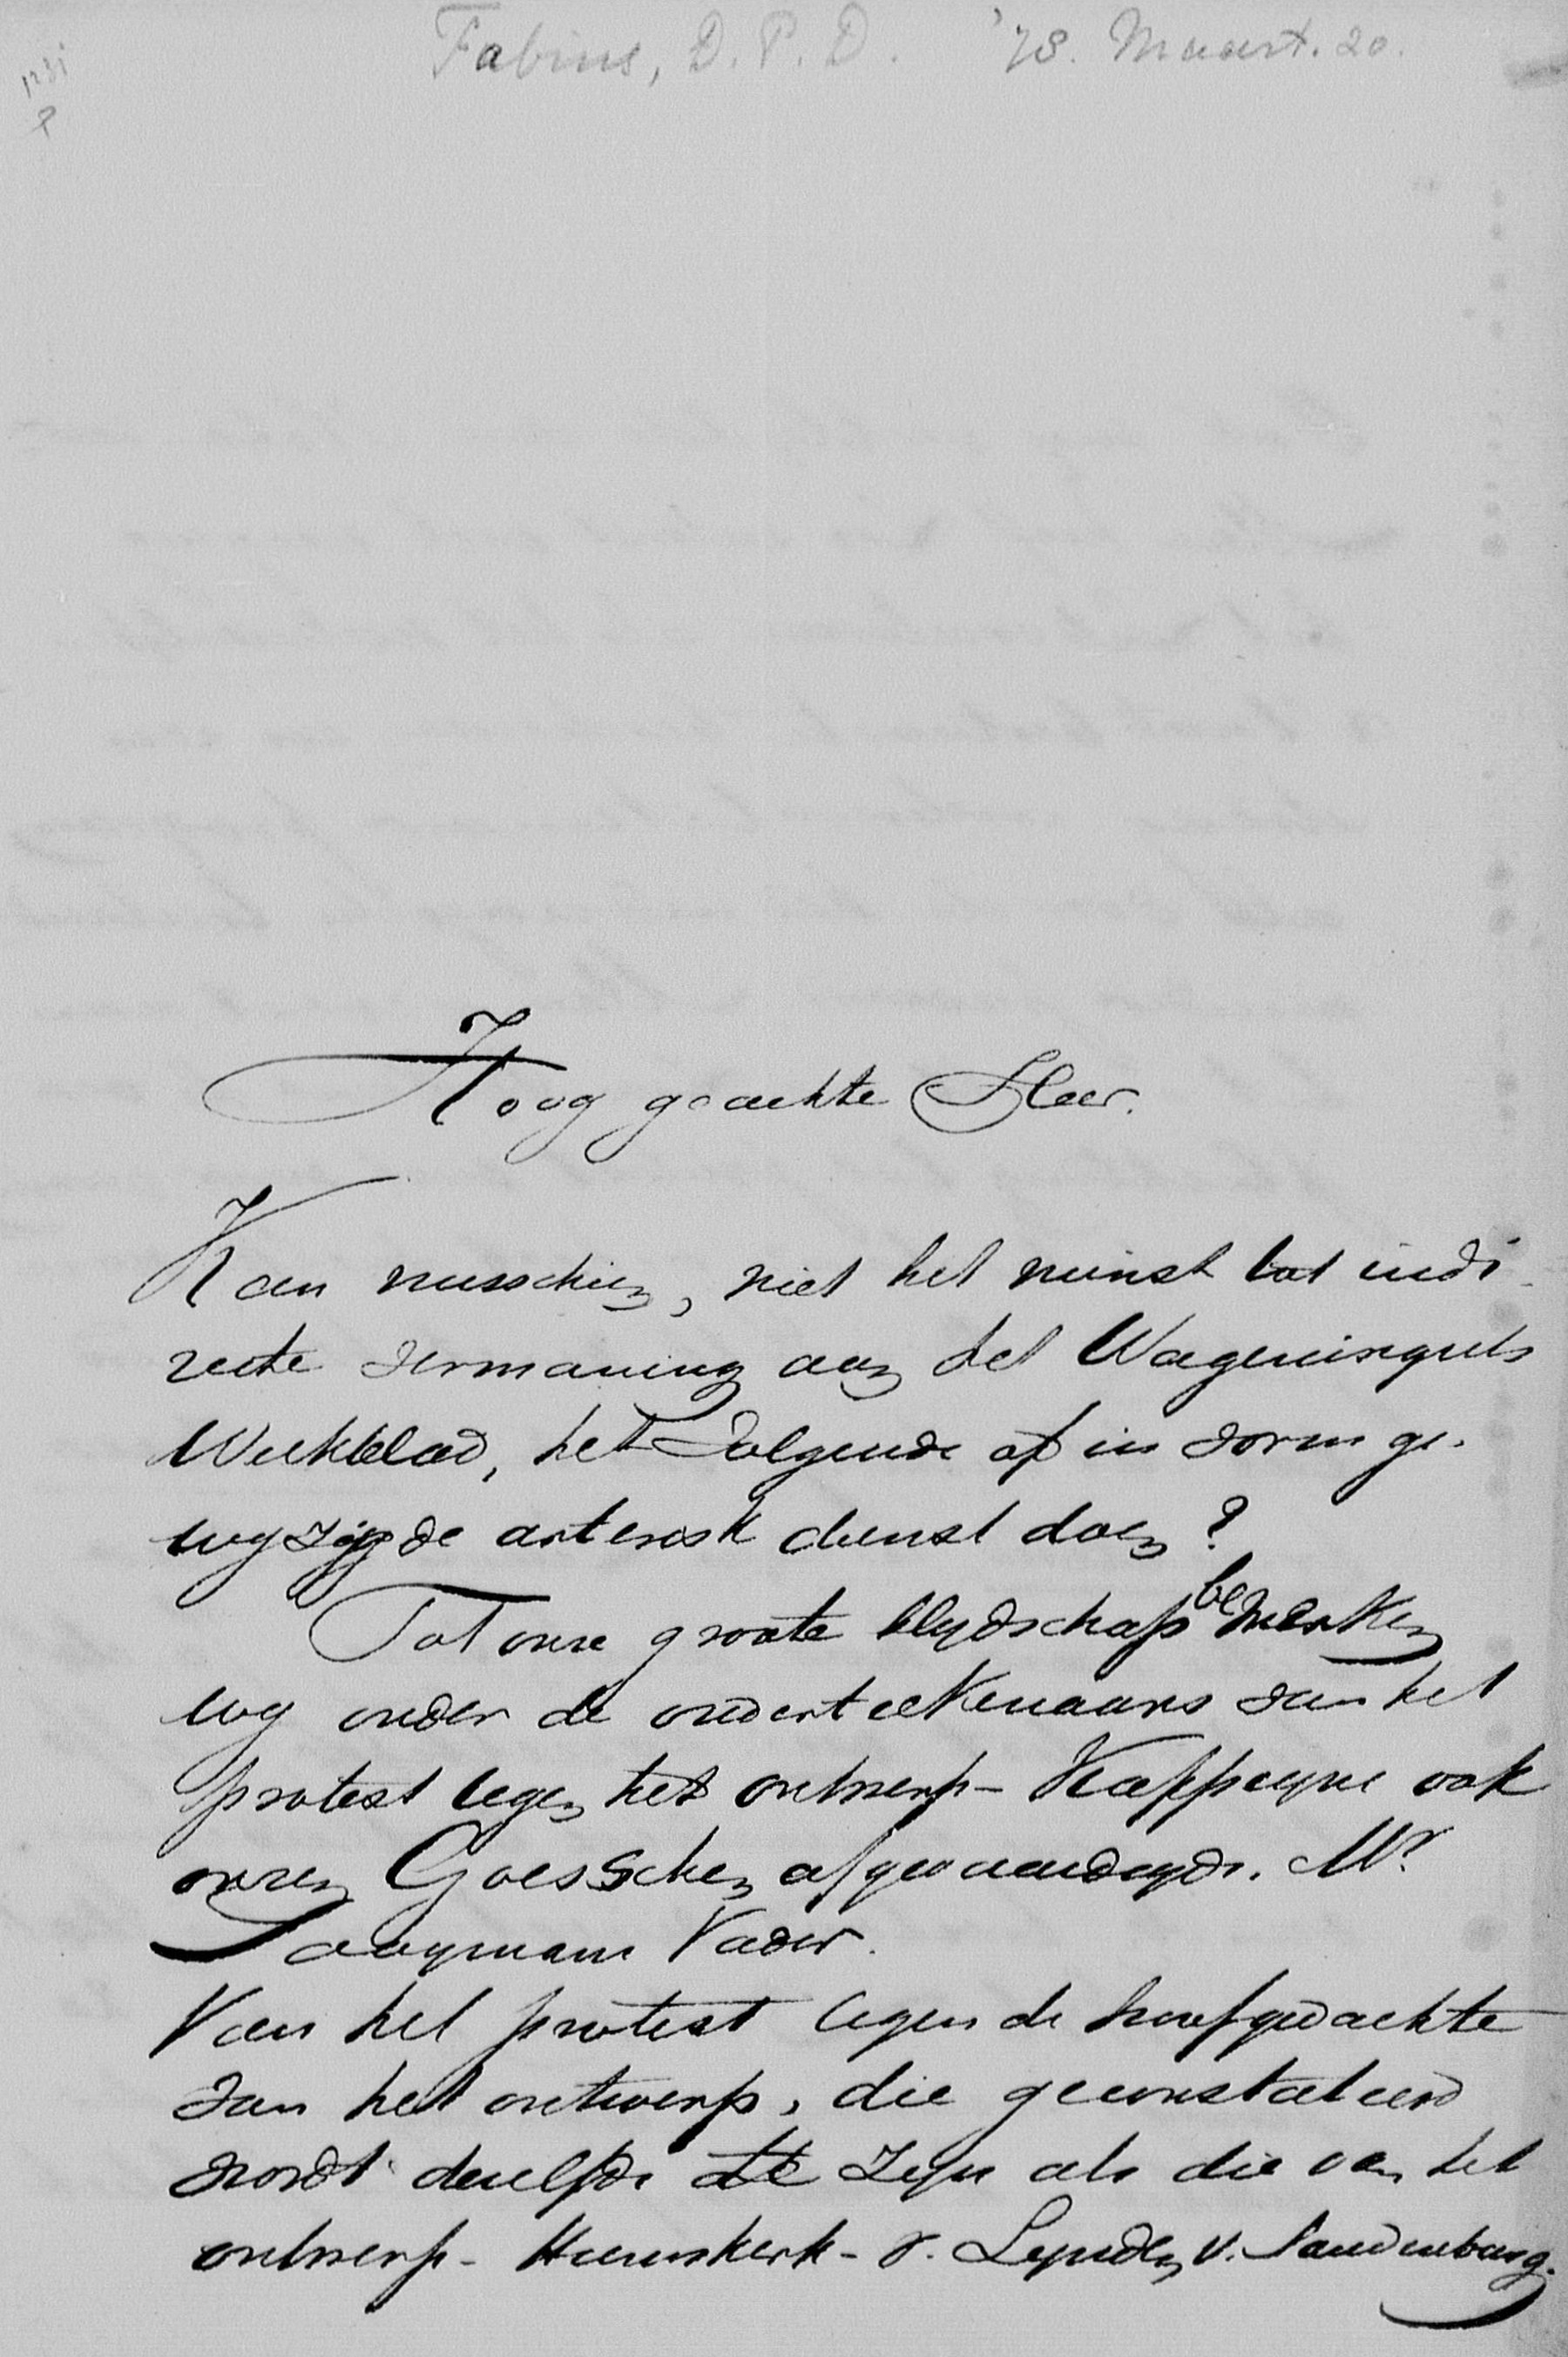 Fabius, D.P.D. '78. Maart. 20.
Hooggeachte Heer.
Kan misschien, niet het minst tot indi-
recte vermaning aan het Wageningsch
Weekblad, het volgende of in vorm ge-
wijzigde asterisk dienst doen?
Tot onze groote blijdschap bemerken
wij onder de onderteekenaars van het
protest tegen het ontwerp-Kappeyne ook
onzen Goesschen afgevaardigde. Mr
Saaymans Vader.
Van het protest tegen de hoofgedachte
van het ontwerp, die geconstateerd
wordt dezelfde te zijn als die van het
ontwerp-Heemskerk-v. Lynden v. Sandenburg.